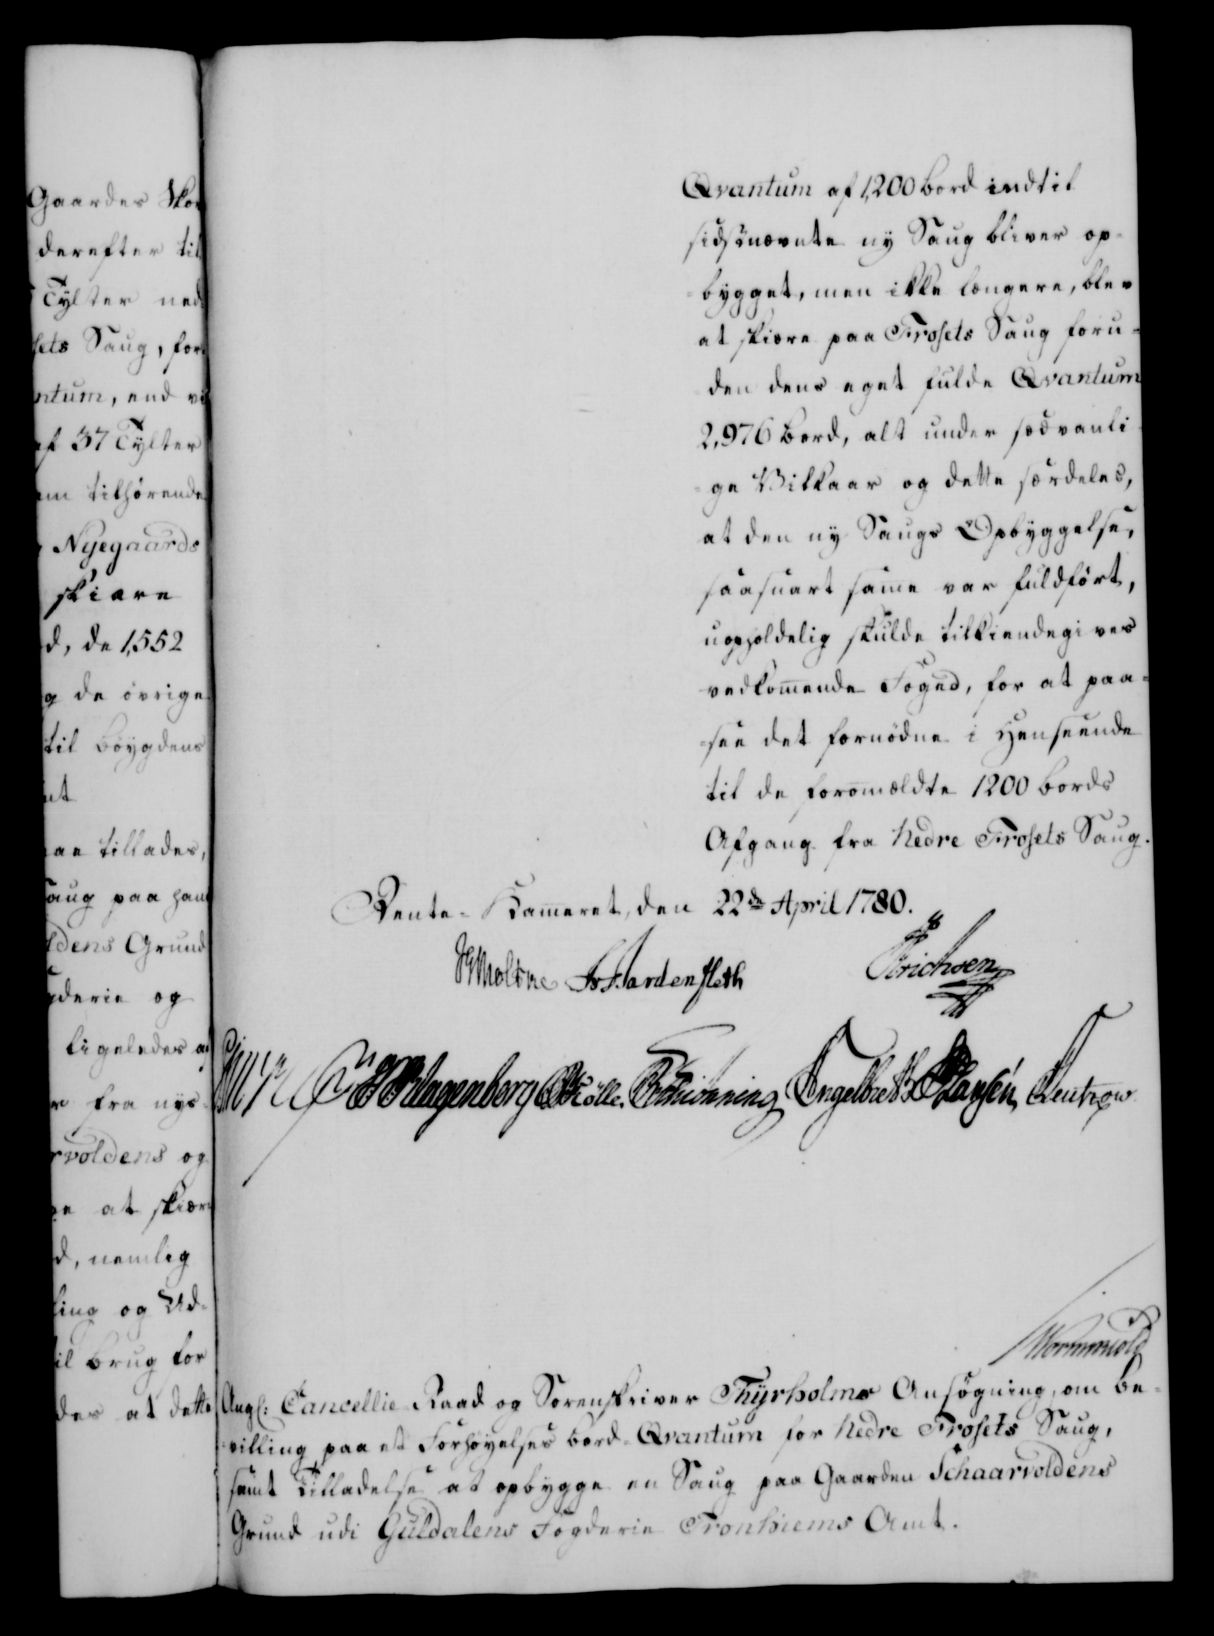 Gaardes
derefter til
Tylter ned
sets Saug, for
ntum, end
af 37 Tylter
em tilhørende
Nyegaards
skiære
d, de 1,552
og de øvrige
til Bøygdens
aae tillades,
Saug paa hans
ldens Grund
gderie og
ligeledes
fra nye
rvoldens og
at skiære
d, nemlig
ling og Ud-
til Brug for
des at dette
Qvantum af 1,200 Bord indtil
sidstnævnte ny Saug bliver op-
-bygget, men ikke længere, blev
at skiære paa Frosets Saug foru-
den dens eget fulde Qvantum
2,976 Bord, alt under sædvanli-
-ge Vilkaar og dette særdeles,
at den ny Saugs Opbyggelse,
saasnart same var fuldført,
uopholdelig skulde tilkiendegives
vedkomende Foged, for at paa-
-see det fornødne i Henseende
til de foromældte 1200 Bords
Afgang fra Nedre Frosets Saug.
Rente-Kameret, den 22de April 1780.
HGMoltke JHardenfleth Erichsen
Klagenberg Schiønning Engelbret Hansen Leutzow
Wormskiold
Angl: Cancellie Raad og Sorenskriver Thyrholms Ansøgning, om Be-
-villing paa et Forhøyelses Bord-Qvantum for Nedre Frosets Saug,
samt Tilladelse at opbygge en Saug paa Gaarden Schaarvoldens
Grund udi Guldalens Fogderie Tronhiems Amt.